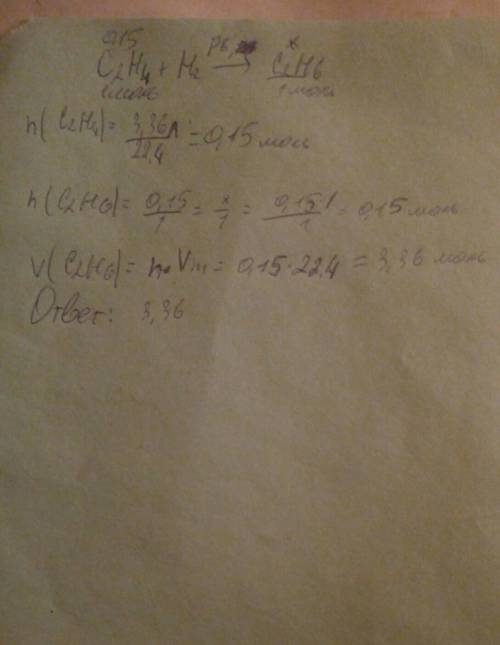 0,15 x
C₂H₄ + H₂ → C₂H₆
1 моль 1 моль
n(C₂H₄) = 3,36л/22,4 = 0,15 моль
n(C₂H₆) = 0,15/1 = x/1 = 0,15·1/1 = 0,15 моль
V(C₂H₆) = n·Vm = 0,15·22,4 = 3,36 моль
Ответ: 3,36